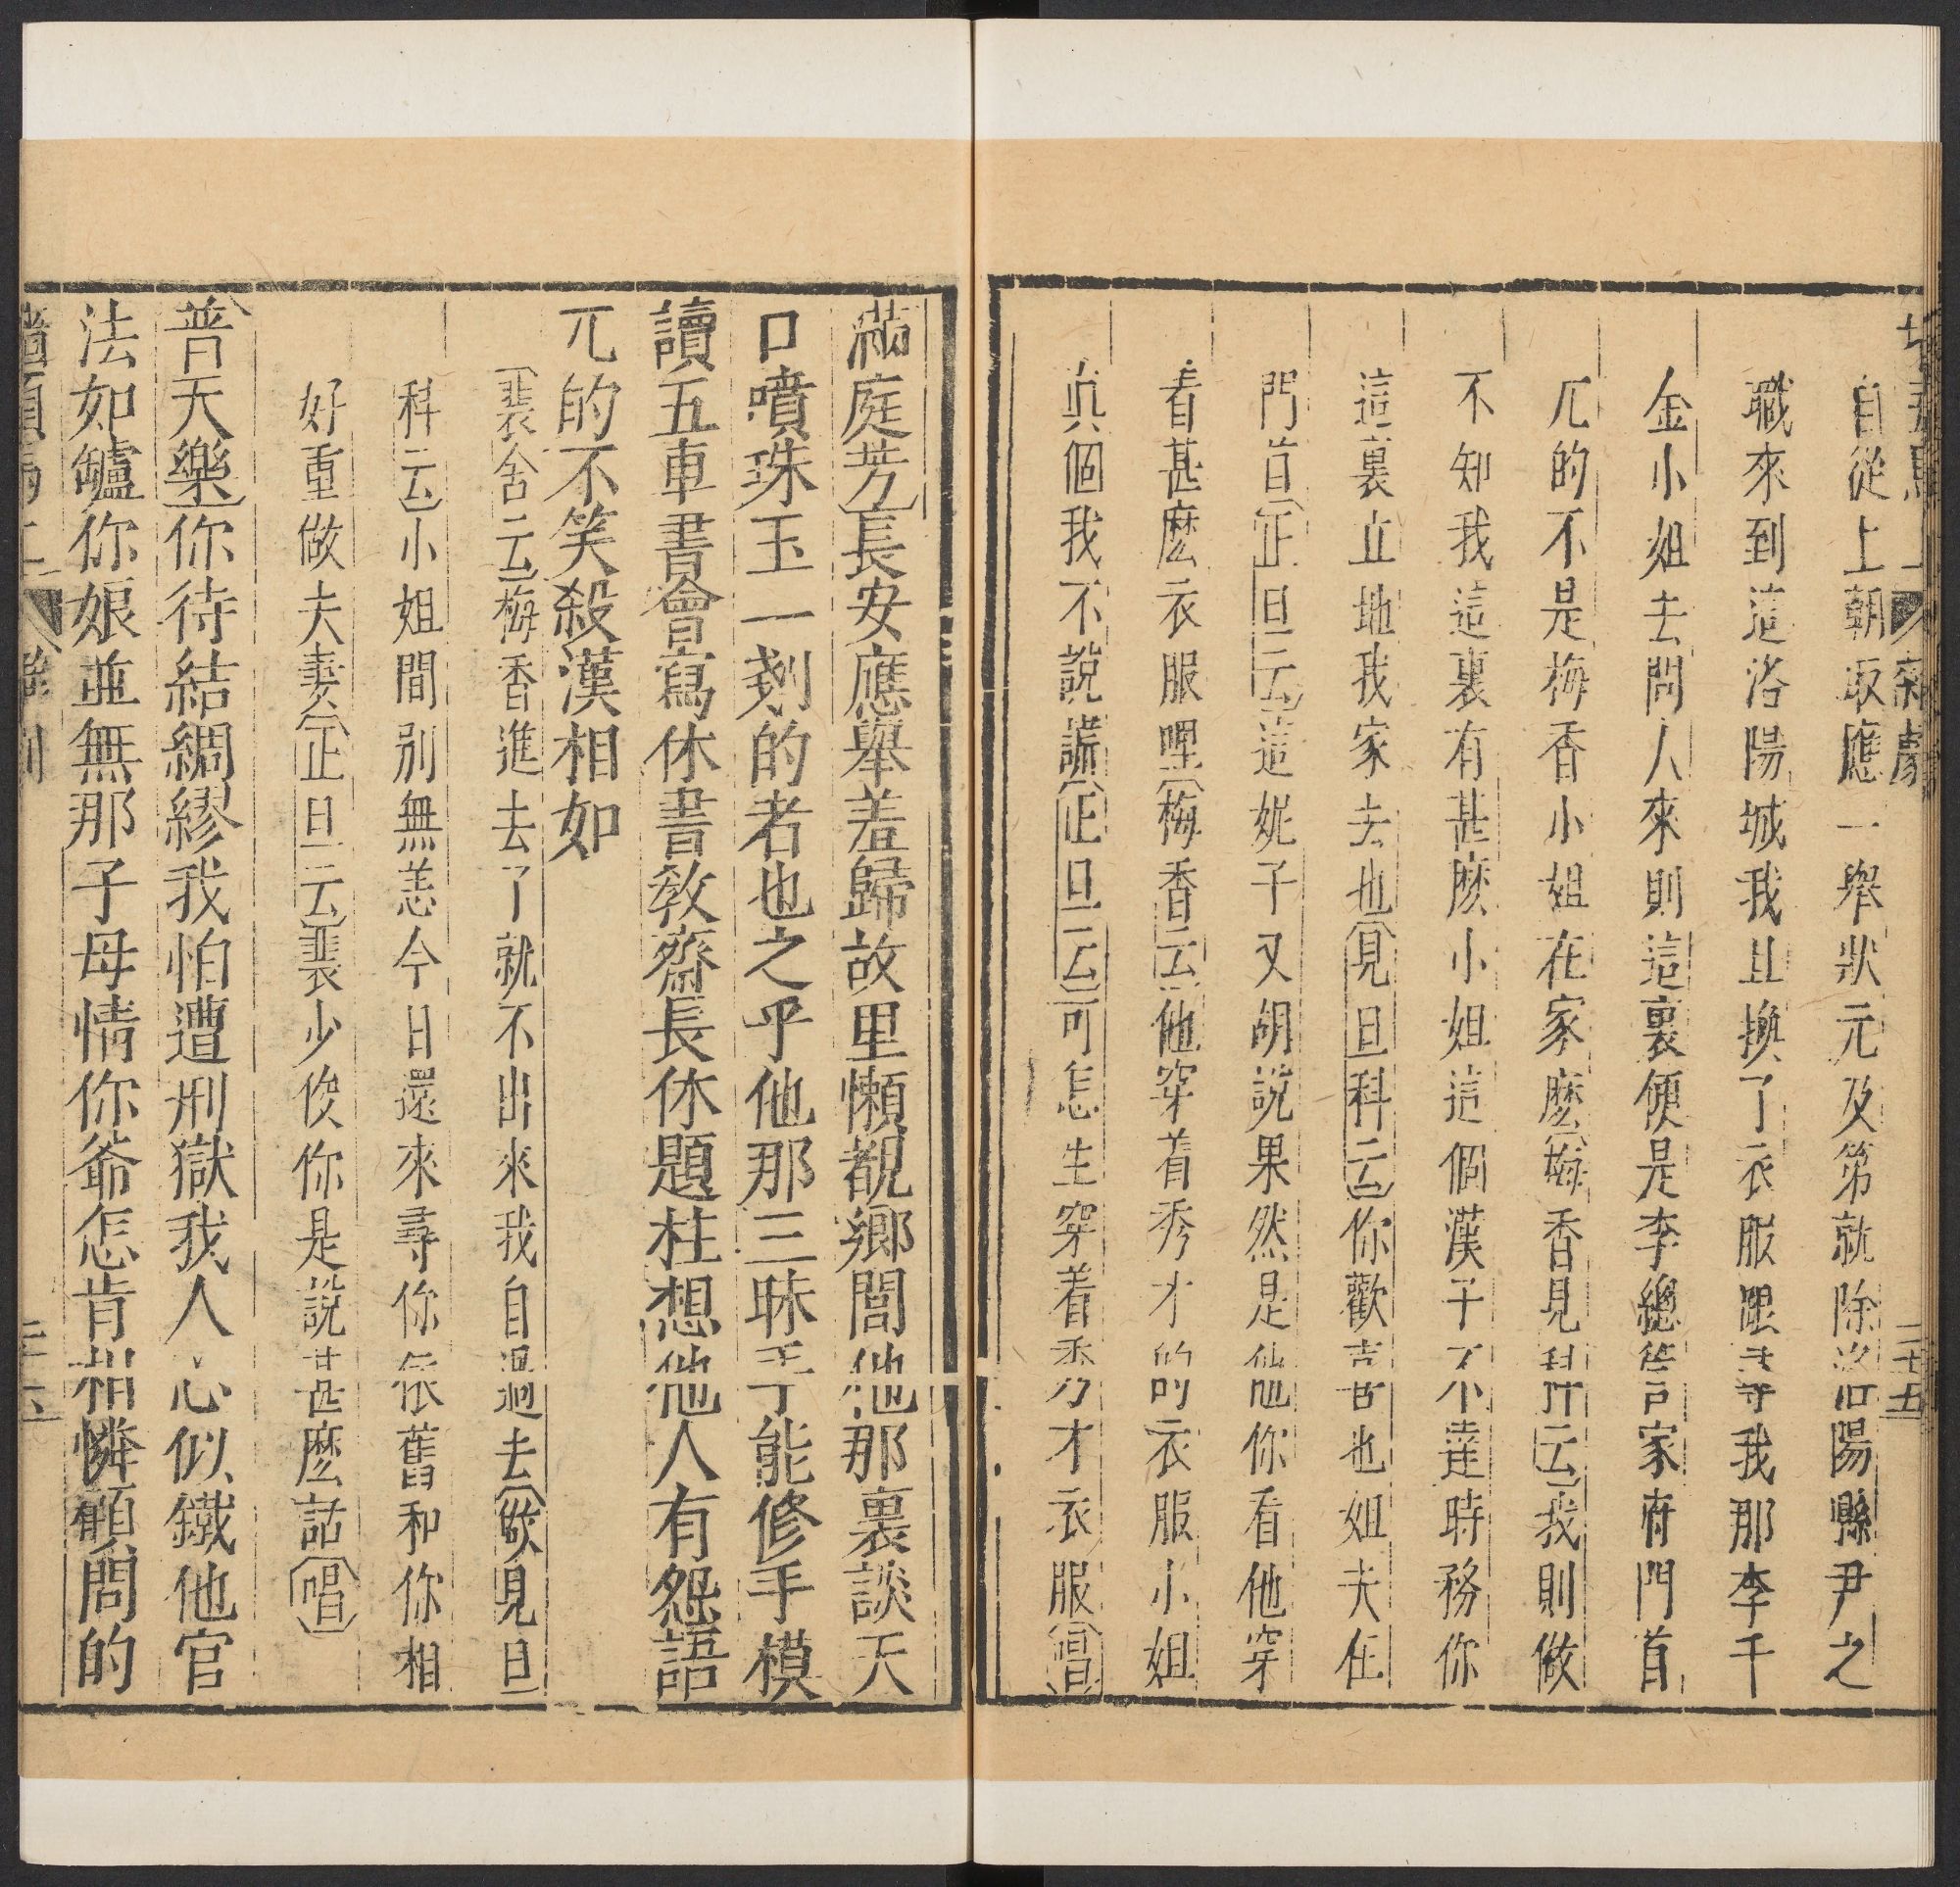 雜劇
二十五
自從上朝取應一舉狀元及第就除洛陽縣尹之
職來到這洛陽城我且換了衣服跟尋我那李千
金小姐去問人來則這裏便是李總管家府門首
兀的不是梅香小姐在家麽(梅香見科云)我則做
不知我這裏有甚麽小姐這個漢子不達時務你
這裏立地我家去也(見旦科云)你歡喜也姐夫在
門首(正旦云)這妮子又胡說果然是他你看他穿
着甚麽衣服哩(梅香云)他穿着秀才的衣服小姐
眞個我不說謊(正旦云)可怎生穿着秀才衣服(唱)
滿庭芳)長安應舉羞歸故里懶覩鄉閭他那裏談天
口噴珠玉一剗的者也之乎他那三昧手能修手模
讀五車書會寫休書敎齋長休題柱想他人有怨語
兀的不笑殺漢相如
(裴舍云)梅香進去了就不出來我自過去(做見旦
科云)小姐間别無恙今日還來尋你依舊和你相
好重做夫妻(正旦云)裴少俊你是說甚麽話(唱)
普天樂)你待結綢繆我怕遭刑獄我人心似鐵他官
法如罏你娘並無那子母情你爺怎肯相憐顧問的